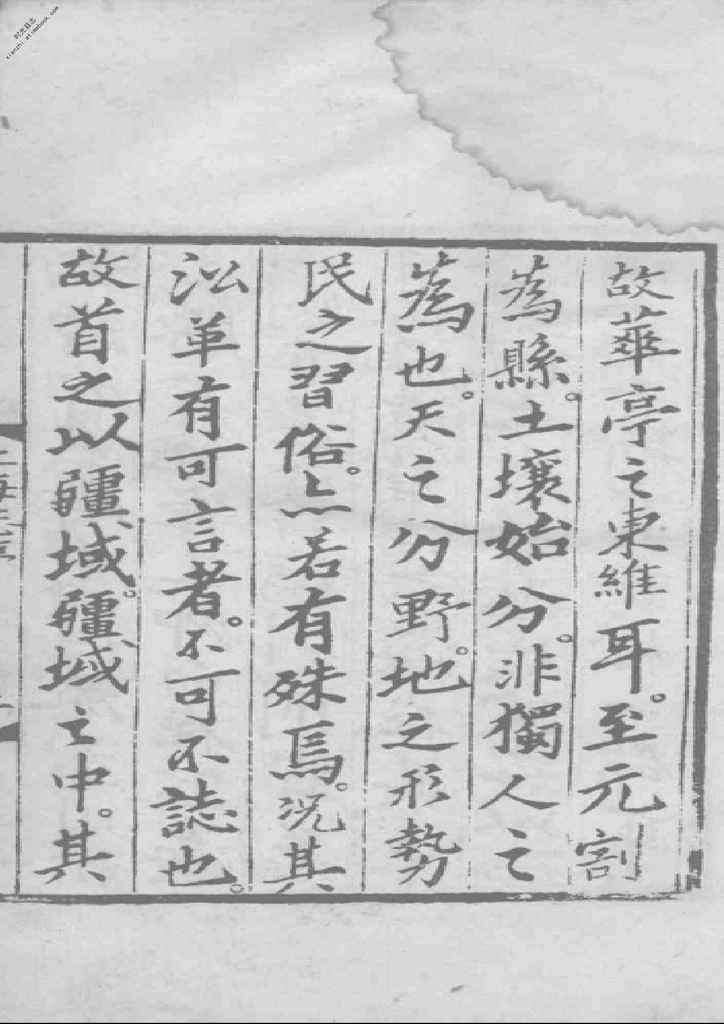 故華亭之東維耳。至元割
為縣。土壤始分。非獨人之
為也。天之分野。地之形勢
民之習俗。亦若有殊焉。况其
㳂革有可言者。不可不誌也。
故首之以疆域。疆域之中。其